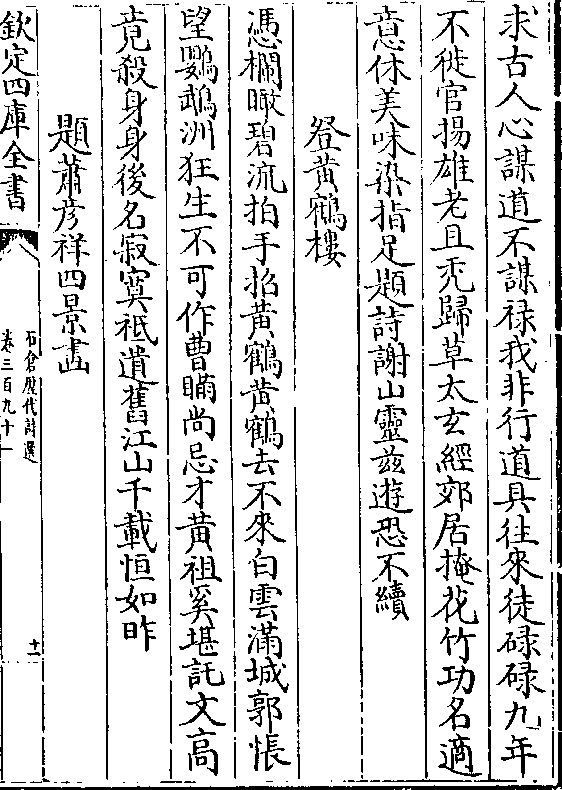 求古人心謀道不謀禄我非行道具往來徒碌碌九年
不徙官揚雄老且禿歸草太玄經郊居掩花竹功名適
意休美味染指足題詩謝山靈兹遊恐不續
登黃鶴樓
憑欄瞰碧流拍手招黃鶴黃鶴去不來白雲滿城郭悵
望鸚鵡洲狂生不可作曹瞞尚忌才黃祖奚堪託文高
竟殺身身後名寂寞祗遺舊江山千載恒如昨
題蕭彦祥四景畫
欽定四庫全書
石倉歷代詩選
卷三百九十一
十一